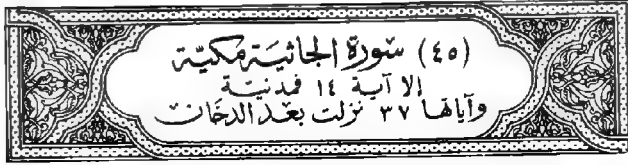 (٤٥) سُورَة الجَاثيَة مَكيّة
إلا آية ١٤ فمدنية
وآياتها ٣٧ نزلت بعد الدخان